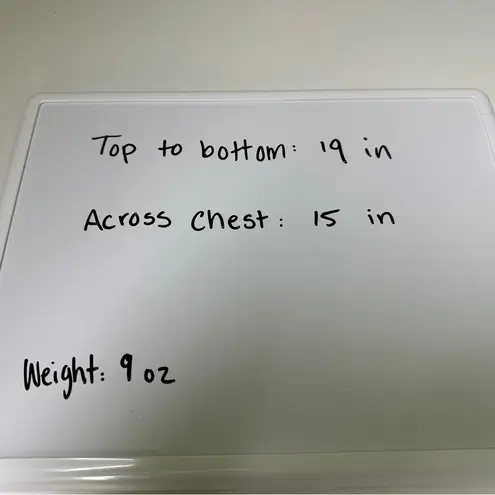 Top to bottom: 19 in
Across Chest: 15 in
Weight: 9 oz